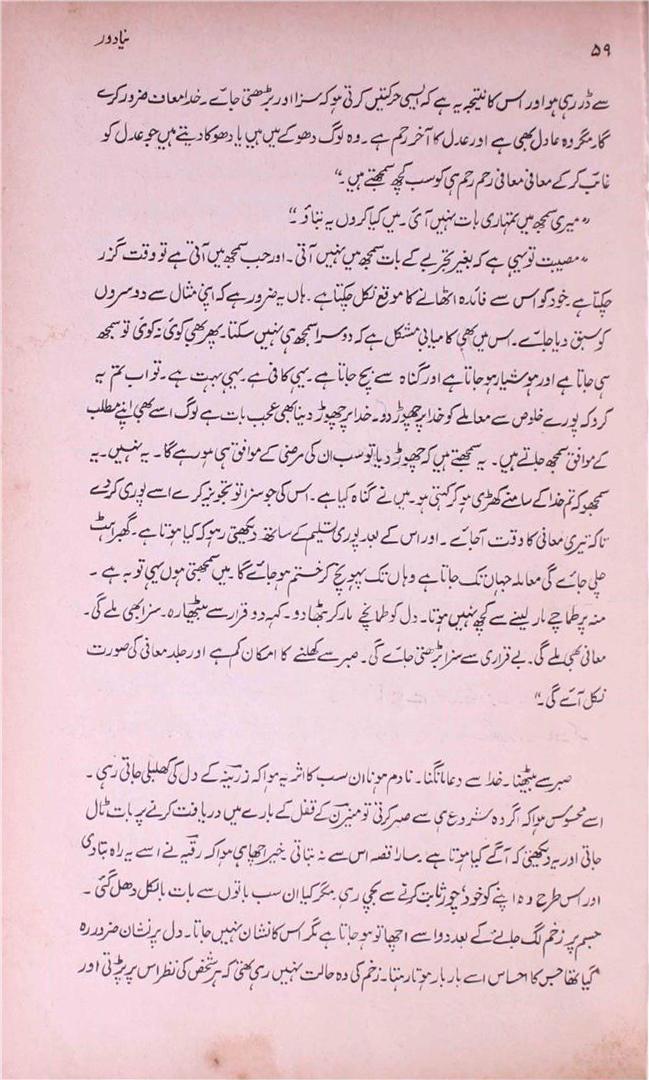 ۵۹ نیا دور
سے ڈر رہی ہو اور اس کا نتیجہ یہ ہے کہ ایسی حرکتیں کرتی ہو کہ سزا اور بڑھتی جائے۔ خدا معاف ضرور کرے
گا۔ مگر وہ عادل بھی ہے اور عدل کا آخر رحم ہے۔ وہ لوگ دھوکے میں ہیں یا دھوکا دیتے ہیں جو عدل کو
غائب کرکے معافی معافی رحم رحم ہی کو سب کچھ سمجھتے ہیں۔"
"میری سمجھ میں تمہاری بات نہیں آئی۔ میں کیا کروں یہ بتاؤ۔"
"مصیبت تو یہی ہے کہ بغیر تجربے کے بات سمجھ میں نہیں آتی۔ اور جب سمجھ میں آتی ہے تو وقت گزر
چکتا ہے۔ خود کو اس سے فائدہ اٹھانے کا موقع نکل چکتا ہے۔ ہاں یہ ضرور ہے کہ اپنی مثال سے دوسروں
کو سبق دیا جائے۔ اس میں بھی کامیابی مشکل ہے کہ دوسرا سمجھ ہی نہیں سکتا۔ پھر بھی کوئی نہ کوئی تو سمجھ
ہی جاتا ہے اور ہوشیار ہو جاتا ہے اور گناہ سے بچ جاتا ہے۔ یہی کافی ہے۔ یہی بہت ہے۔ تو اب تم یہ
کرو کہ پورے خلوص سے معاملے کو خدا پر چھوڑ دو۔ خدا پر چھوڑ دینا بھی عجب بات ہے لوگ اسے بھی اپنے مطلب
کے موافق سمجھ جاتے ہیں۔ یہ سمجھتے ہیں کہ چھوڑ دیا تو سب ان کی مرضی کے موافق ہی ہو رہے گا۔ یہ نہیں۔ یہ
سمجھو کہ تم خدا کے سامنے کھڑی ہو کر کہتی ہو۔ میں نے گناہ کیا ہے۔ اس کی جو سزا تو تجویز کرے اسے پوری کر دے
تاکہ تیری معافی کا وقت آجائے۔ اور اس کے بعد پوری تسلیم کے ساتھ دیکھتی رہو کہ کیا ہوتا ہے۔ گھبراہٹ
چلی جائے گی معاملہ جہاں تک جاتا ہے وہاں تک پہونچ کر ختم ہو جائے گا۔ میں سمجھتی ہوں یہی توبہ ہے۔
منہ پر طمانچے مار لینے سے کچھ نہیں ہوتا۔ دل کو طمانچے مار کر بٹھا دو۔ کہہ دو قرار سے بیٹھا رہ۔ سزا بھی ملے گی۔
معافی بھی ملے گی۔ بے قراری سے سزا بڑھتی جائے گی۔ صبر سے کھلنے کا امکان کم ہے اور جلد معافی کی صورت
نکل آئے گی۔"
صبر سے بیٹھنا۔ خدا سے دعا مانگنا۔ نادم ہونا ان سب کا اثر یہ ہوا کہ زرینہ کے دل کی کھلبلی جاتی رہی۔
اسے محسوس ہوا کہ اگر وہ شروع ہی سے صبر کرتی تو منیزن کے قفل کے بارے میں دریافت کرنے پر بات ٹال
جاتی اور یہ دیکھتی کہ آگے کیا ہوتا ہے۔ سارا قصہ اس سے نہ بتاتی۔ خیر اچھا ہی ہوا کہ رقیہ نے اسے یہ راہ بتا دی
اور اس طرح وہ اپنے کو خود 'چور' ثابت کرنے سے بچی رہی۔ مگر کیا ان سب باتوں سے بات بالکل دھل گئی۔
جسم پر زخم لگ جانے کے بعد دوا سے اچھا تو ہو جاتا ہے مگر اس کا نشان نہیں جاتا۔ دل پر نشان ضرور رہ
گیا تھا جس کا احساس اسے بار بار ہوتا رہتا۔ زخم کی وہ حالت نہیں رہی تھی کہ ہر شخص کی نظر اس پر پڑتی اور